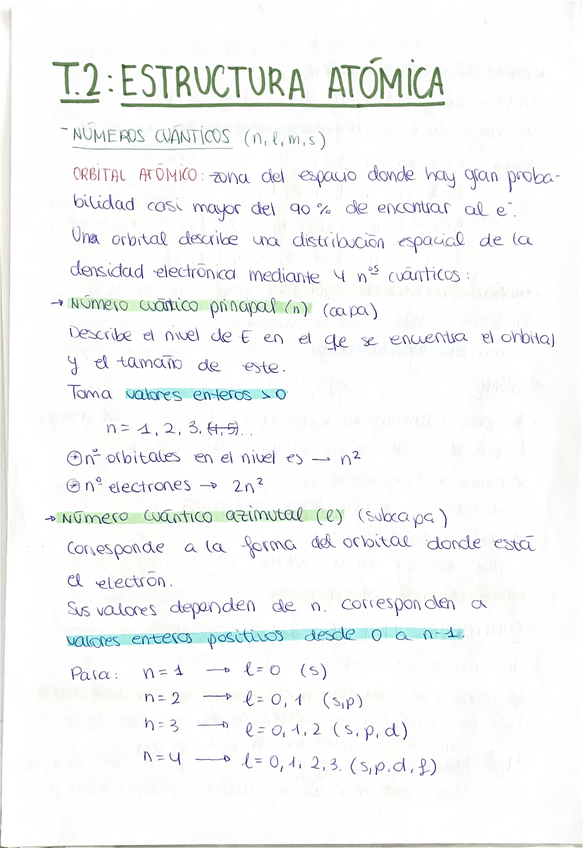 T.2: ESTRUCTURA ATÓMICA
- NÚMEROS CUÁNTICOS (n, l, m, s)
ORBITAL ATÓMICO: zona del espacio donde hay gran proba-
bilidad casi mayor del 90% de encontrar al e⁻.
Una orbital describe una distribución espacial de la
densidad electrónica mediante 4 nºs cuánticos:
→ Número cuántico principal (n) (capa)
Describe el nivel de E en el qe se encuentra el orbital
y el tamaño de este.
Toma valores enteros > 0
n = 1, 2, 3, (4, 5)...
⊕ nº orbitales en el nivel es → n²
⊕ nº electrones → 2n²
→ Número cuántico azimutal (l) (subcapa)
Corresponde a la forma del orbital donde está
el electrón.
Sus valores dependen de n. corresponden a
valores enteros positivos desde 0 a n-1.
Para: n = 1 → l = 0 (s)
n = 2 → l = 0, 1 (s, p)
n = 3 → l = 0, 1, 2 (s, p, d)
n = 4 → l = 0, 1, 2, 3. (s, p, d, f)